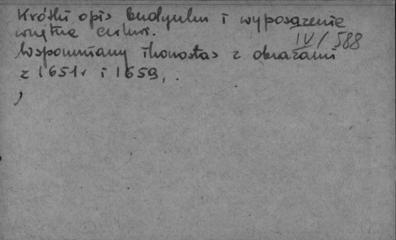 Krótki opis budynku i wyposażenie
wnętrza cerkwi.
IV/588
Wspomniany ikonostas z obrazami
z 1651r i 1659,.